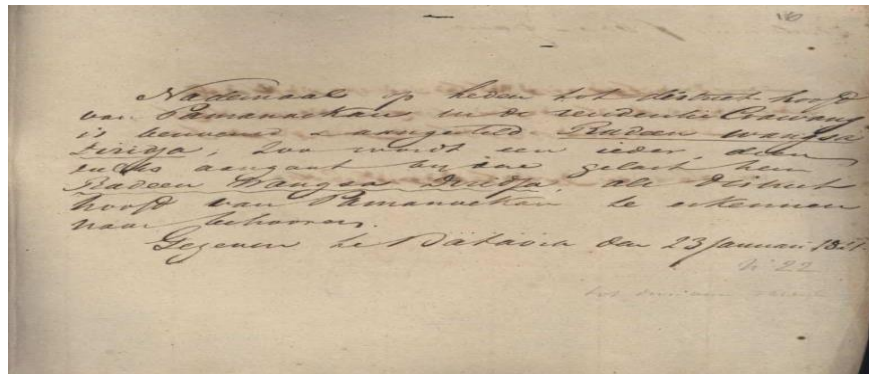 Nademaal op heden tot district hoofd
van Pamanoekan in de residentie Crawang
is benoemd & aangesteld Radeen wangsa
Diridja, zoo wordt een ieder, dien
zulks aangaat bij deze gelast, hem
Radeen Wangsa Diridja, als District
hoofd van Pamanoekan te erkennen
naar behooren.
Gegeven te Batavia den 23 Januari
N 22